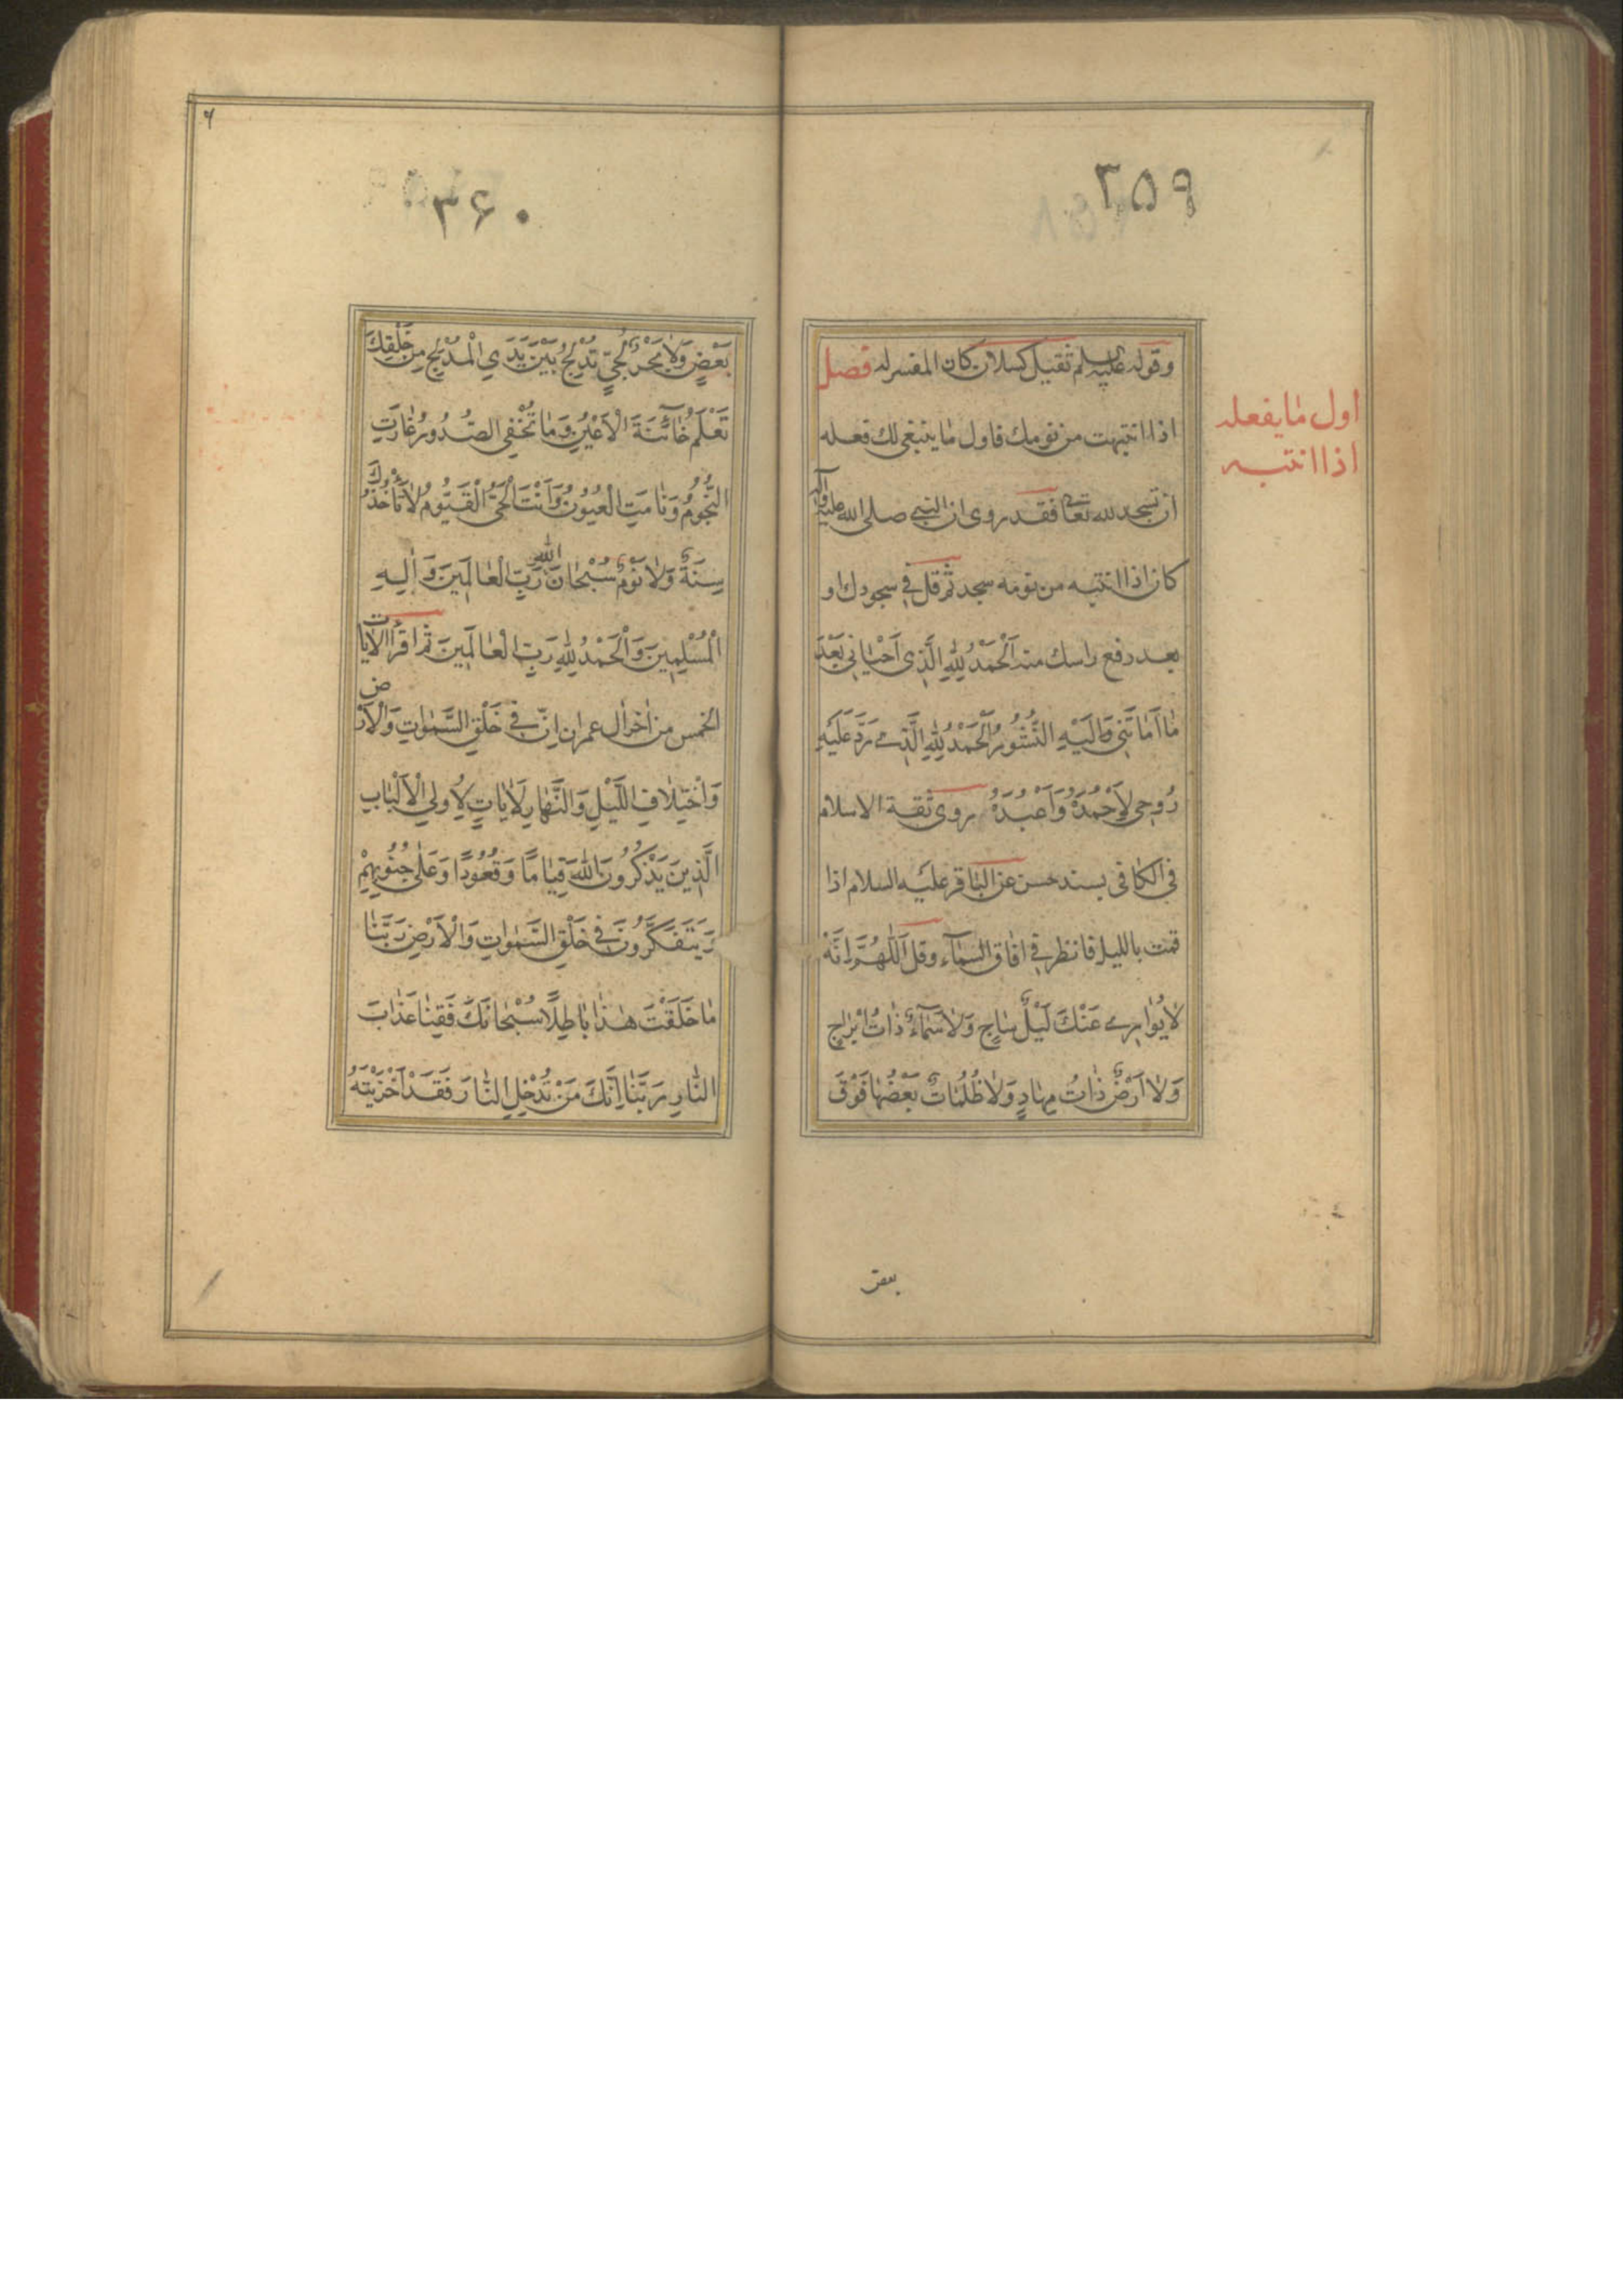 ٣٥٩
وقوله عليه السلم ثقيل كسلان كان المفسر له فصل
اول ما يفعله
اذا انتبه
اذا انتبهت من نومك فاول ما ينبغى لك فعله
ان تسجد لله تعالى فقد روى ان النبى صلى الله عليه وآله
كان اذا انتبه من نومه سجد ثم قل فى سجودك او
بعد رفع راسك منه اَلْحَمْدُ لِلّٰهِ الَّذِى اَحْيٰانِى بَعْدَ
مٰا اَمٰاتَنِى وَاِلَيْهِ النُّشُورُ اَلْحَمْدُ لِلّٰهِ الَّذِى رَدَّ عَلَيَّ
رُوحِى لِاَحْمَدَهُ وَاَعْبُدَهُ روى ثقة الاسلام
فى الكافى بسند حسن عن الباقر عليه السلام اذا
قمت بالليل فانظر فى افاق السمآء وقل اَللّٰهُمَّ اِنَّهُ
لٰا يُوٰارِى عَنْكَ لَيْلٌ سٰاجٍ وَلٰا سَمٰآءٌ ذٰاتُ اَبْرٰاجٍ
وَلٰا اَرْضٌ ذٰاتُ مِهٰادٍ وَلٰا ظُلُمٰاتٌ بَعْضُهٰا فَوْقَ
بعض
٣۶٠
بَعْضٍ وَلٰا بَحْرٌ لُجِّيٌّ تُدْلِجُ بَيْنَ يَدَيِ الْمُدْلِجِ مِنْ خَلْقِكَ
تَعْلَمُ خٰآئِنَةَ الْاَعْيُنِ وَمٰا تُخْفِى الصُّدُورُ غٰارَتِ
النُّجُومُ وَنٰامَتِ الْعُيُونُ وَاَنْتَ الْحَىُّ الْقَيُّومُ لٰا تَأْخُذُكَ
سِنَةٌ وَلٰا نَوْمٌ سُبْحٰانَ اللّٰهِ رَبِّ الْعٰالَمِينَ وَاِلٰهِ
الْمُسْلِمِينَ وَالْحَمْدُ لِلّٰهِ رَبِّ الْعٰالَمِينَ ثم اقرأ الايات
الخمس من اخر ال عمران اِنَّ فِى خَلْقِ السَّمٰوٰاتِ وَالْاَرْضِ
وَاخْتِلٰافِ اللَّيْلِ وَالنَّهٰارِ لَاٰيٰاتٍ لِاُولِى الْاَلْبٰابِ
الَّذِينَ يَذْكُرُونَ اللّٰهَ قِيٰامًا وَقُعُودًا وَعَلٰى جُنُوبِهِمْ
وَيَتَفَكَّرُونَ فِى خَلْقِ السَّمٰوٰاتِ وَالْاَرْضِ رَبَّنٰا
مٰا خَلَقْتَ هٰذٰا بٰاطِلًا سُبْحٰانَكَ فَقِنٰا عَذٰابَ
النّٰارِ رَبَّنٰا اِنَّكَ مَنْ تُدْخِلِ النّٰارَ فَقَدْ اَخْزَيْتَهُ